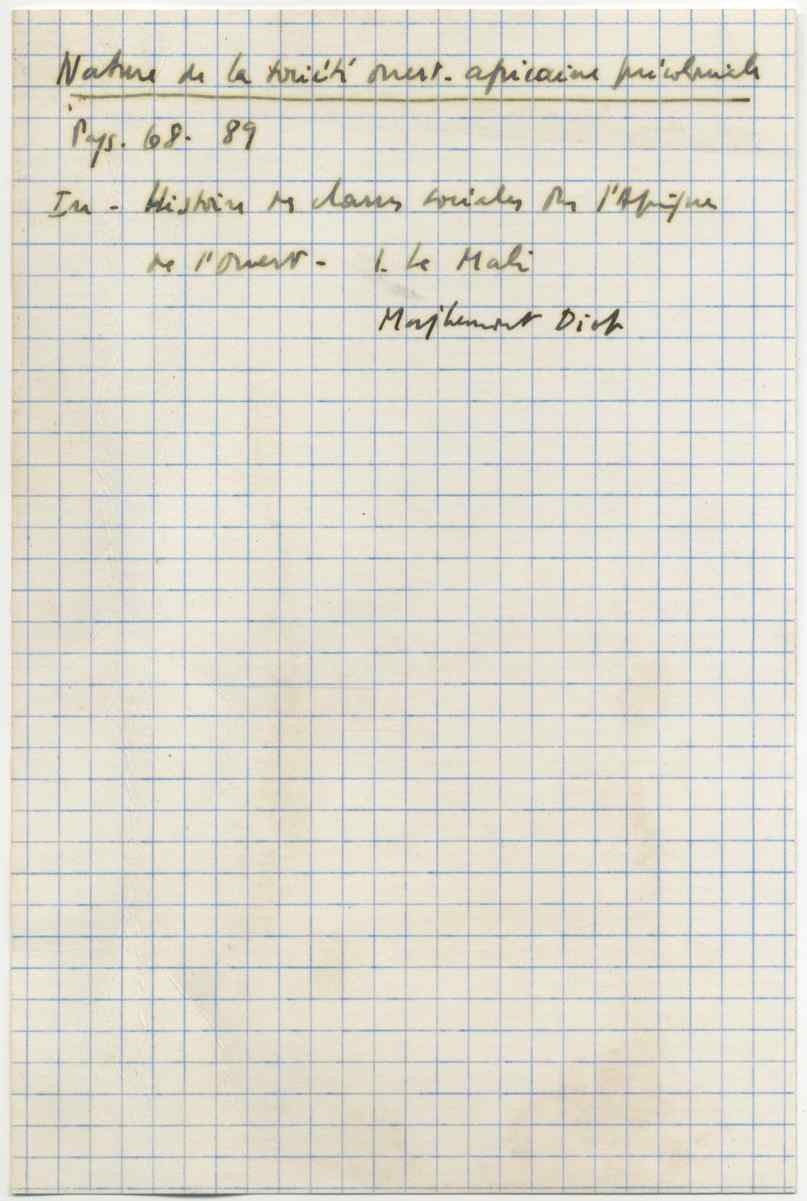 Nature de la société ouest-africaine précoloniale
Pags. 68-89
In - Histoire des classes sociales dans l'Afrique
de l'Ouest - 1. Le Mali
Majhemout Diop